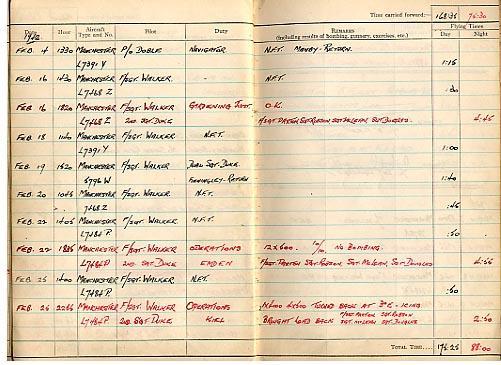 Time carried forward:— 168·35 75·30
Date Hour Aircraft Type and No. Pilot Duty Remarks (including results of bombing, gunnery, exercises, etc.) Flying Times
1942 Day Night
FEB. 4 1330 MANCHESTER P/O DOBLE NAVIGATOR N.F.T. MANBY - RETURN.
L7391 Y 1·15
FEB. 16 1430 MANCHESTER F/SGT. WALKER. N.F.T.
L7468 Z ·30
FEB. 16 1820 MANCHESTER F/SGT. WALKER GARDENING O.K.
L7468 Z 2ND SGT DUKE F/SGT PAXTON SGT ROBSON SGT MCLEAN SGT DOUGLAS 4·45
FEB. 18 1140 MANCHESTER F/SGT. WALKER N.F.T.
L7391 Y 1·00
FEB. 19 1520 MANCHESTER F/SGT. WALKER DUAL SGT. DUKE
W FINNINGLEY - RETURN 1·40
FEB. 20 1045 MANCHESTER F/SGT. WALKER N.F.T.
7468 Z ·45
FEB. 22 1405 MANCHESTER F/SGT. WALKER N.F.T.
L7484 P. ·50
FEB. 22 MANCHESTER F/SGT. WALKER OPERATIONS 12 X 500. 10/10 NO BOMBING.
L7484 P 2ND SGT DUKE EMDEN F/SGT. PAXTON SGT. ROBSON, SGT. MCLEAN, SGT. DOUGLAS
FEB. 25 1400 MANCHESTER F/SGT. WALKER N.F.T.
L7484 P. ·50
FEB. 26 MANCHESTER F/SGT WALKER OPERATIONS TURNED BACK AT 3°E - ICING
L7484 P 2ND SGT DUKE KIEL BROUGHT LOAD BACK F/SGT. PAXTON SGT. ROBSON SGT. MCLEAN SGT. DOUGLAS 2·50
Total Time.... 176·25 88·00